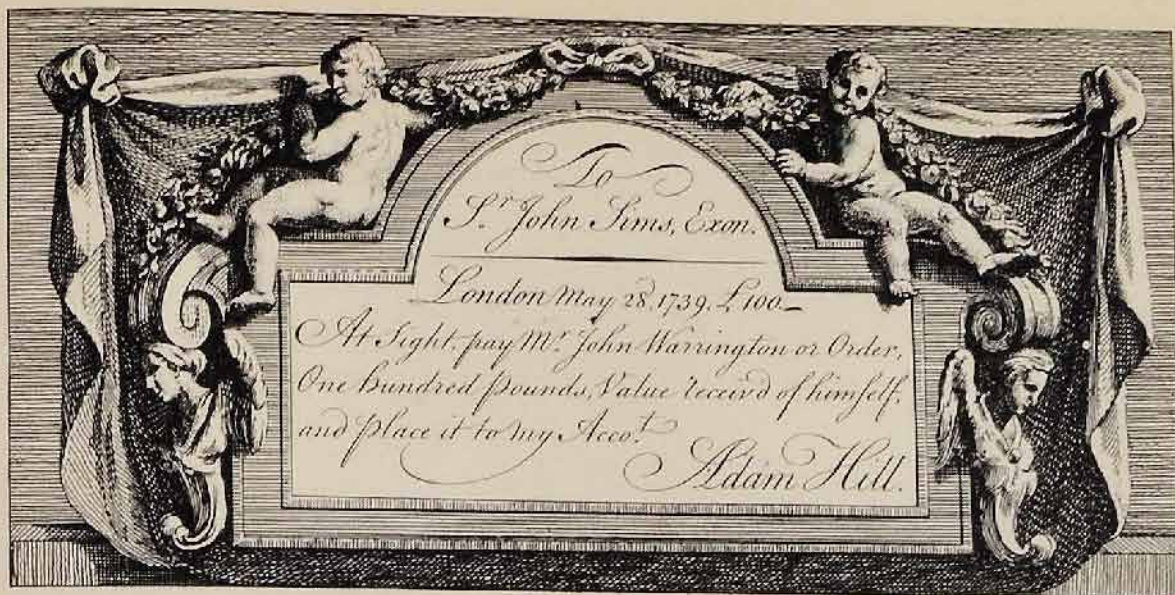 To
Sr. John Sims, Exon.
London May 28. 1739. £100.
At Sight, pay Mr. John Warrington or Order,
One hundred pounds, Value receiv'd of himself,
and place it to my Accot.
Adam Hill.